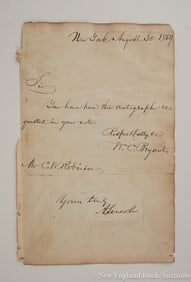 New York August 30 1869
Sir
You have here the autograph re-
quested in your note.
Respectfully
W. C. Bryant
Mr C. W. Robinson
Yours truly
A Lincoln
New England Book Auctions